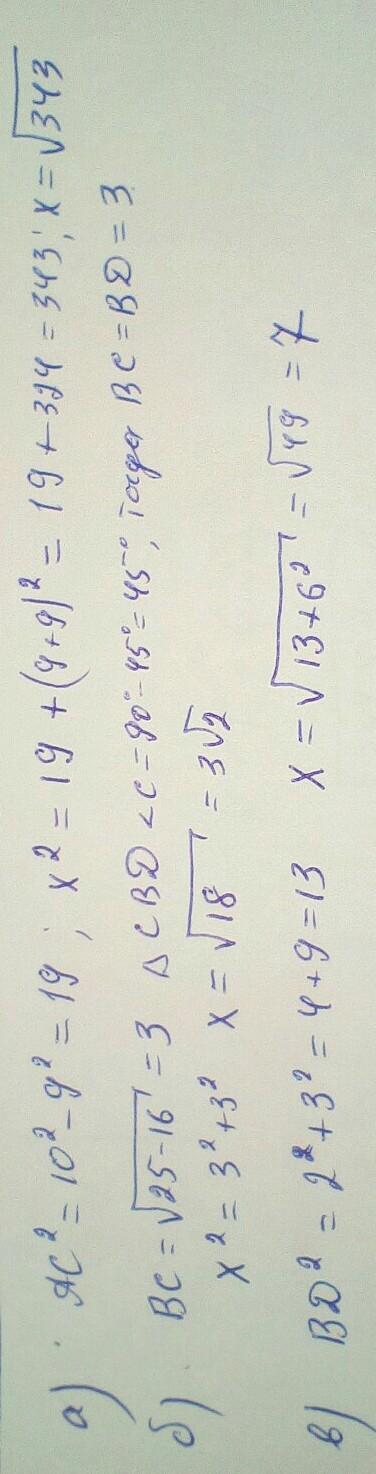 а) AC² = 10² - 9² = 19 ; x² = 19 + (9+9)² = 19 + 324 = 343 ; x = √343
б) BC = √25-16 = 3 △ CBD ∠C = 90° - 45° = 45° ; тогда BC = BD = 3
x² = 3² + 3² x = √18 = 3√2
в) BD² = 2² + 3² = 4 + 9 = 13 x = √13+6² = √49 = 7